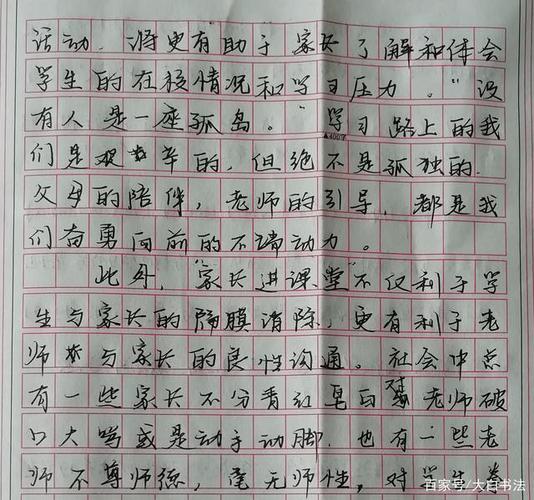 活动，将更有助于家长了解和体会
学生的在校情况和学习压力。“没
有人是一座孤岛。”学习路上的我
▲400字
们是艰辛的，但绝不是孤独的.
父母的陪伴，老师的引导，都是我
们奋勇向前的不竭动力。
此外，“家长进课堂”不仅利于学
生与家长的隔膜消除，更有利于老
师与家长的良性沟通。社会中总
有一些家长不分青红皂白对老师破
口大骂或是动手动脚.也有一些老
师不尊师德，毫无师性，对学生拳
百家号/大白书法